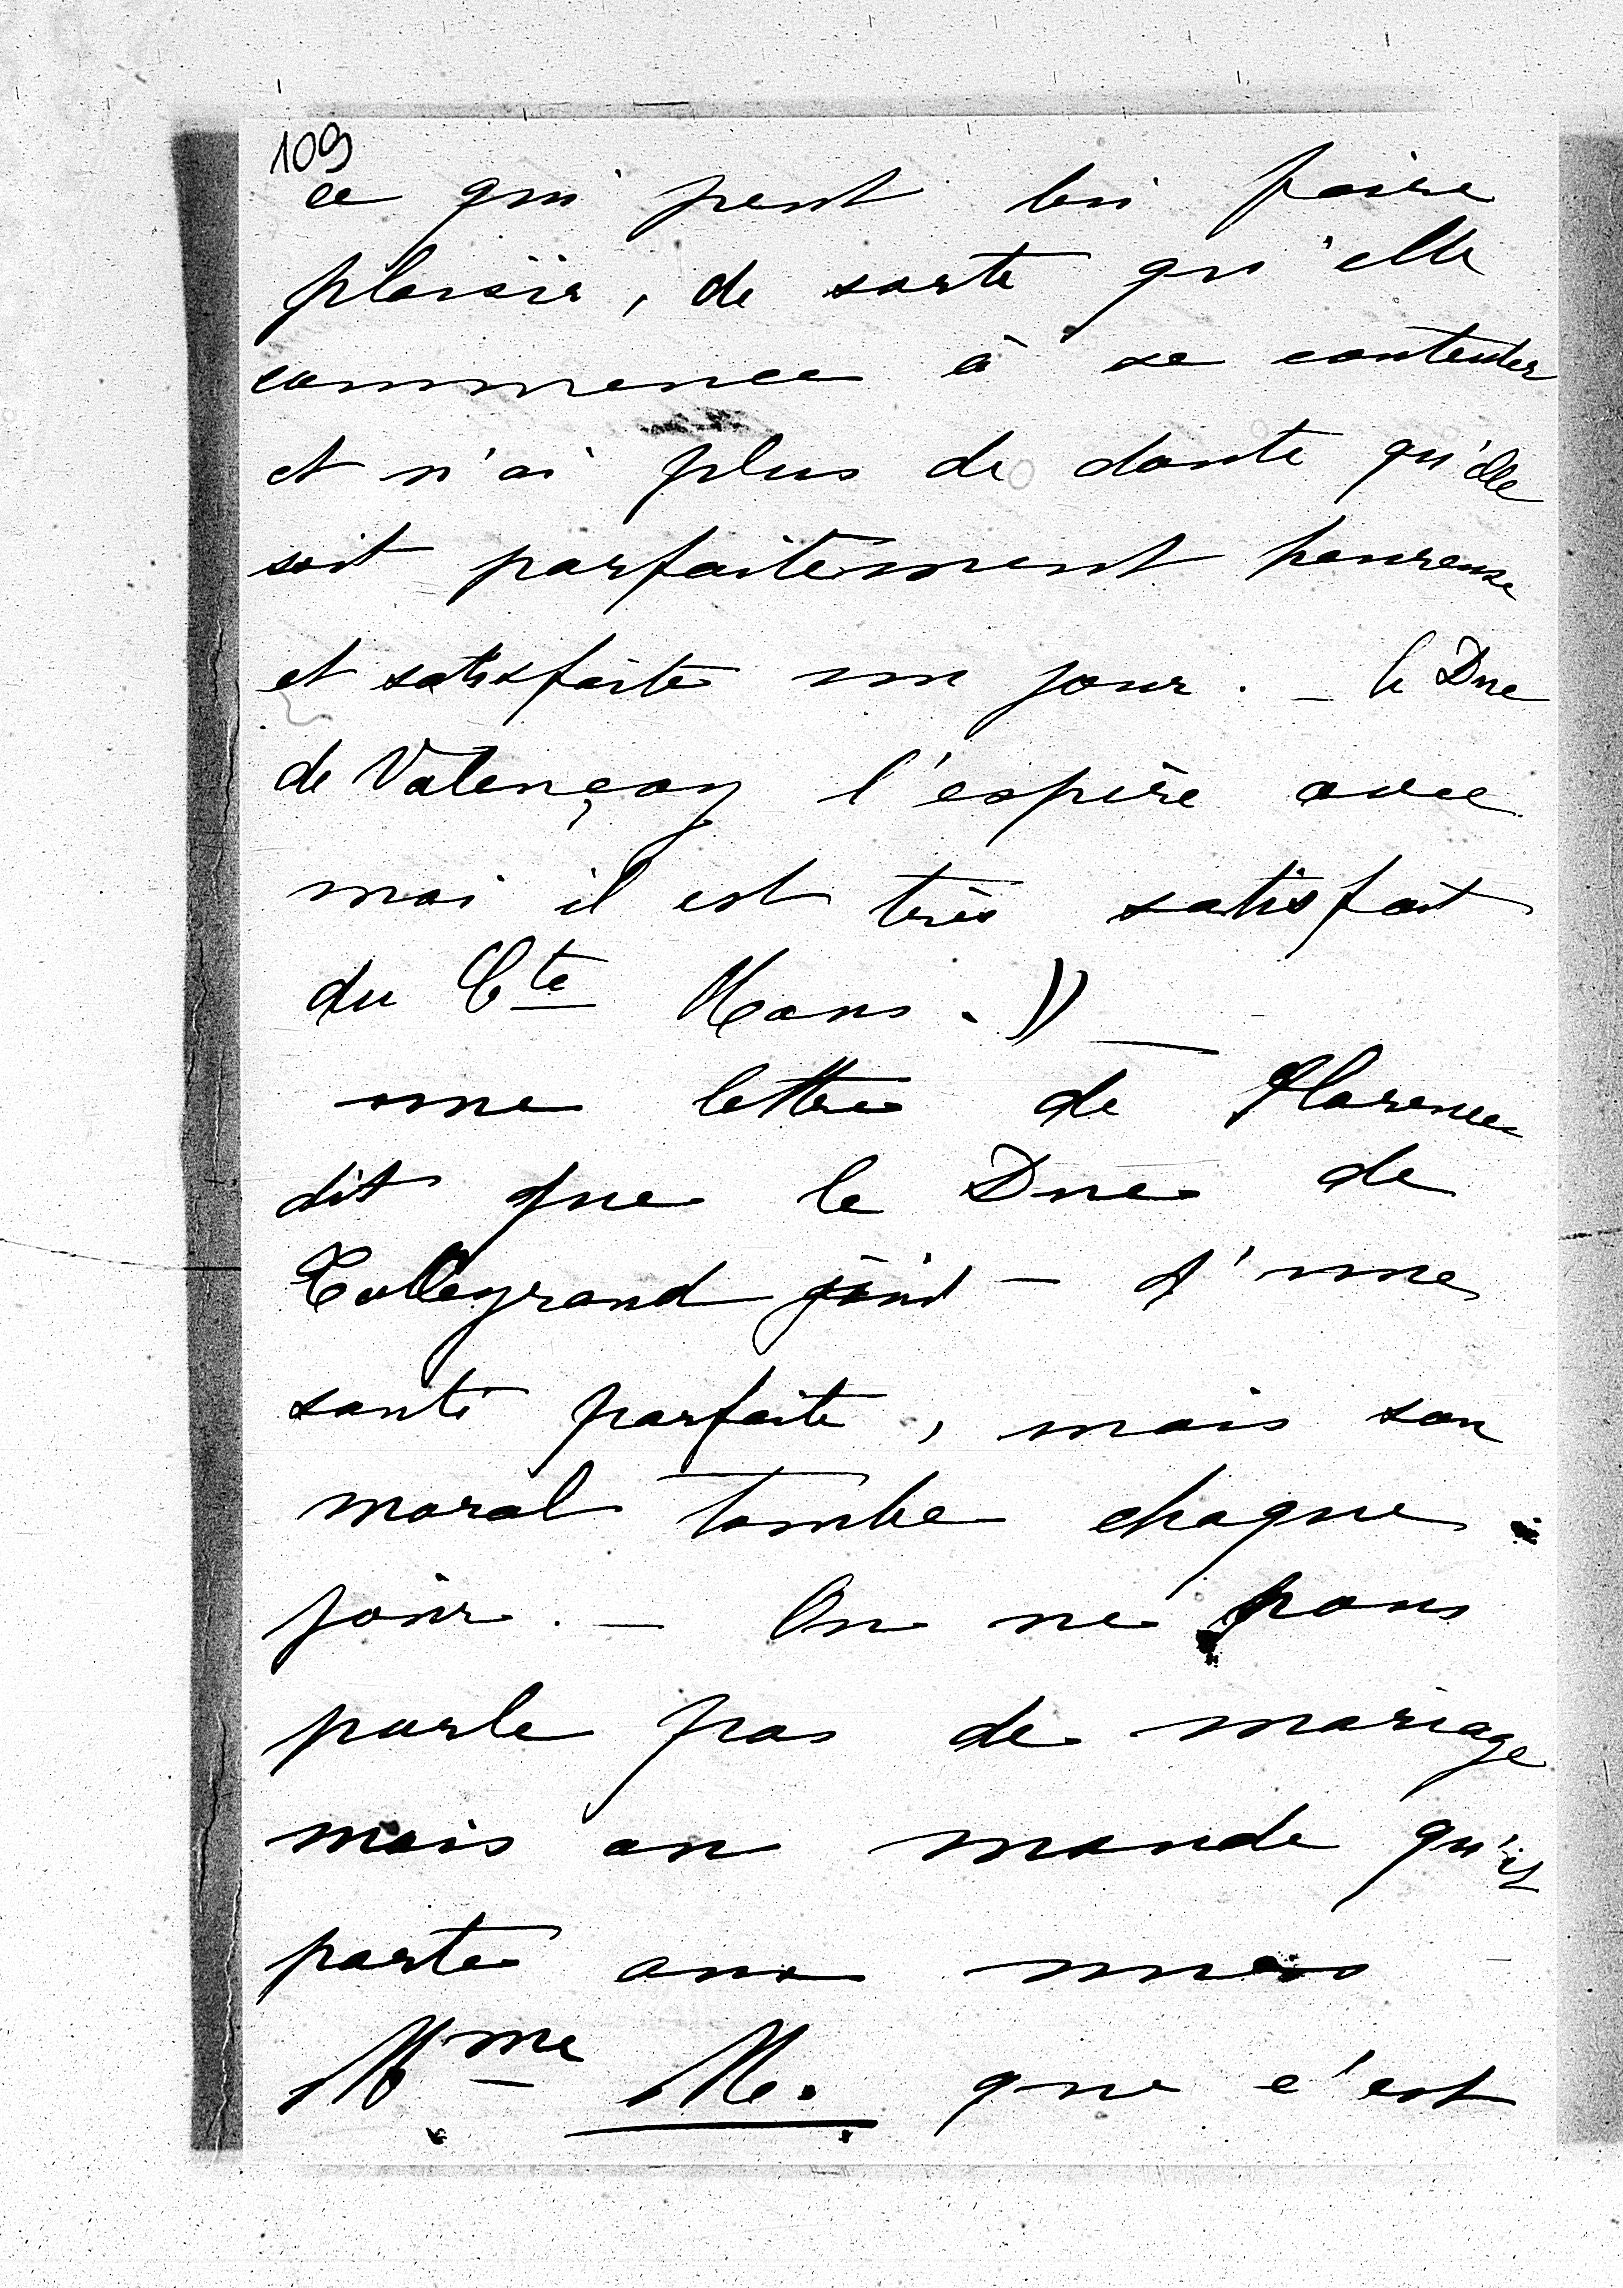 109
ce qui peut lui faire
plaisir, de sorte qu'elle
commence à se contenter
et n'ai plus de doute qu'elle
soit parfaitement heureuse
et satisfaite un jour. - le Duc
de Valençay l'espère avec
moi il est très satisfait
du Cte Hans. » —
une lettre de Florence
dit que le Duc de
Talleyrand jouit - d'une
santé parfaite, mais son
moral tombe chaque
jour. - On ne nous
parle pas de mariage
mais on mande qu'il
porte aux nues
Mme M. que c'est